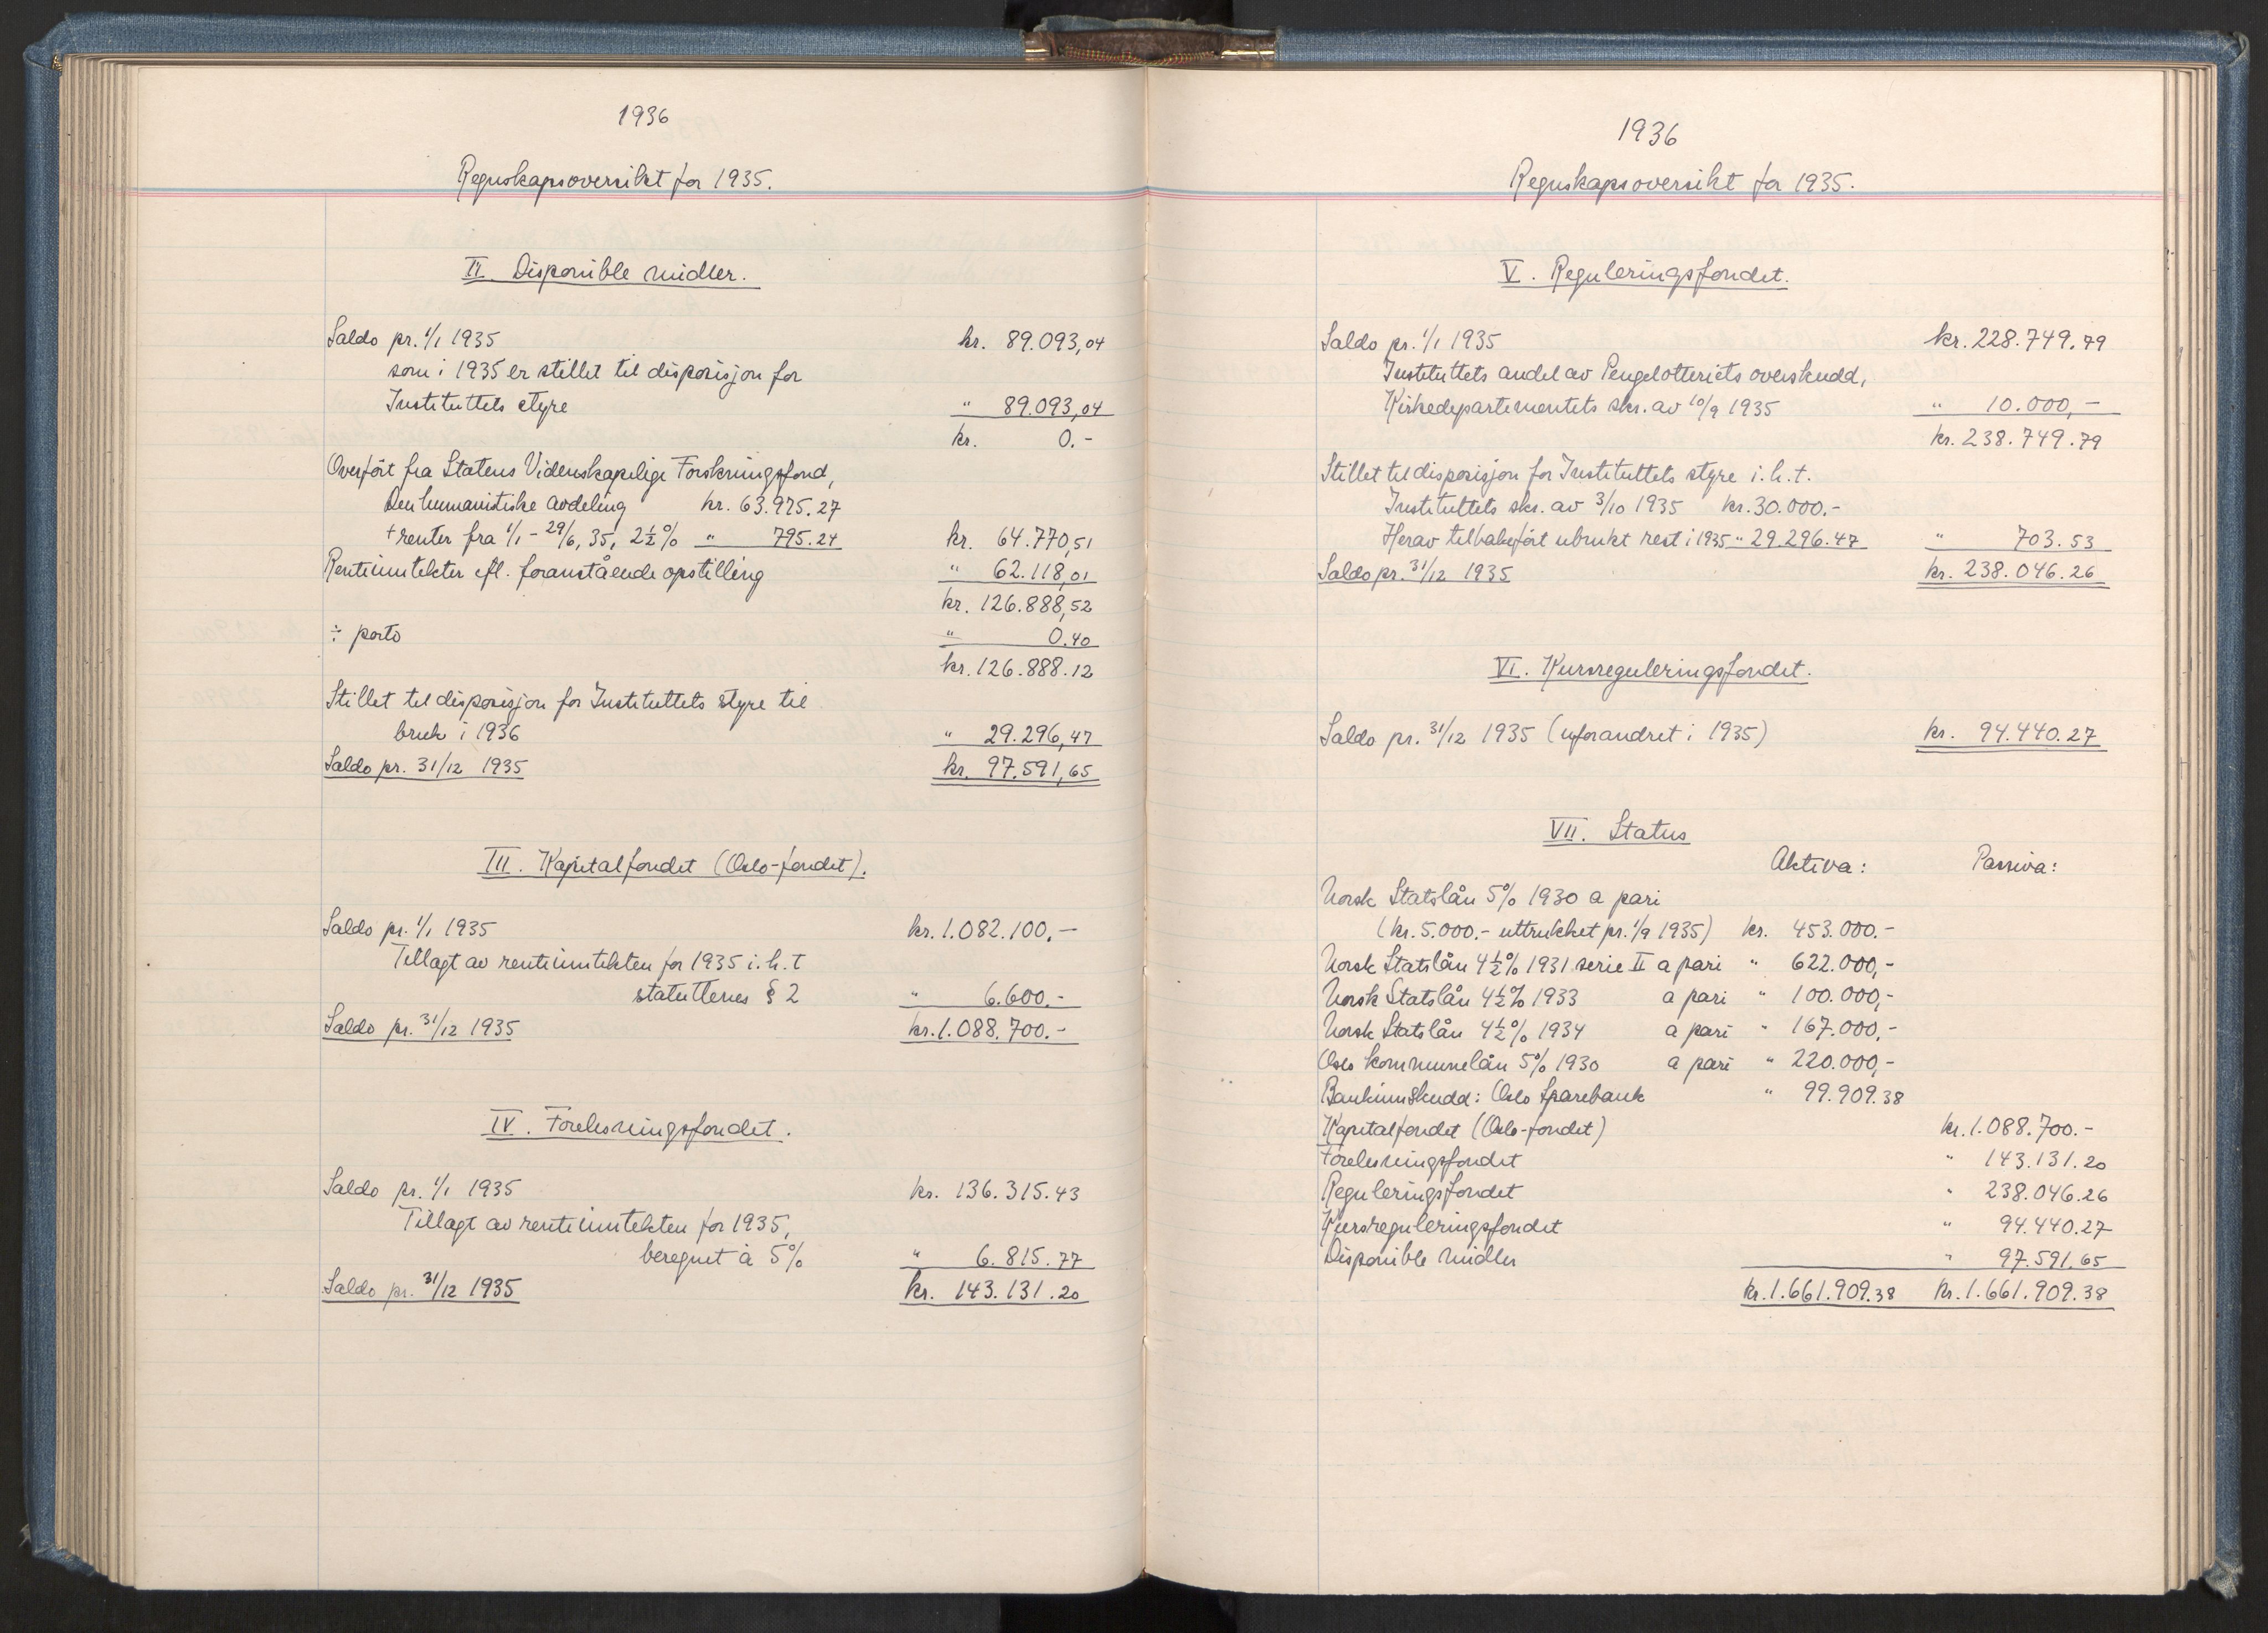 1936
Regnskapsoversikt for 1935.
II Disponible midler.
Saldo pr. 1/1 1935 kr. 89.093,04
som i 1935 er stillet til disposisjon for
Instituttets styre " 89.093,04
kr. 0.-
Overført fra Statens Videnskapelige Forskningsfond,
Den humanistiske avdeling kr. 63.975.27
+ renter fra 1/1 - 29/6, 35, 2½% " 795.24 kr. 64.770,51
Renteinntekter efl. foranstående opstilling " 62.118,01
kr. 126.888,52
÷ porto " 0.40
kr. 126.888.12
Stillet til disposisjon for Instituttets styre til
bruk i 1936 " 29.296,47
Saldo pr. 31/12 1935 kr. 97.591,65
III. Kapitalfondet (Oslo-fondet).
Saldo pr. 1/1 1935 kr. 1.082.100.-
Tillagt av renteinntekten for 1935 i.h.t
statuttenes § 2 " 6.600.-
Saldo pr. 31/12 1935 kr. 1.088.700.-
IV. Forelesningsfondet.
Saldo pr. 1/1 1935 kr. 136.315.43
Tillagt av renteinntekten for 1935,
beregnet à 5% " 6.815.77
Saldo pr. 31/12 1935 kr. 143.131.20
1936
Regnskapsoversikt for 1935.
V. Reguleringsfondet.
Saldo pr. 1/1 1935 kr. 228.749.79
Instituttets andel av Pengelotteriets overskudd,
Kirkedepartementets skr. av 10/9 1935 " 10.000,-
kr. 238.749.79
Stillet til disposisjon for Instituttets styre i.h.t.
Instituttets skr. av 3/10 1935 kr. 30.000.-
Herav tilbakeført ubrukt rest i 1935 " 29.296.47 " 703.53
Saldo pr. 31/12 1935 kr. 238.046.26
VI. Kursreguleringsfondet.
Saldo pr. 31/12 1935 (uforandret i 1935) kr. 94.440.27
VII. Status
Aktiva: Passiva:
Norsk Statslån 5% 1930 a pari
(kr. 5.000.- uttrukket pr. 1/9 1935) kr. 453.000.-
Norsk Statslån 4½% 1931 serie II a pari " 622.000,-
Norsk Statslån 4½% 1933 a pari " 100.000,-
Norsk Statslån 4½% 1934 a pari " 167.000,-
Oslo kommunelån 5% 1930 a pari " 220.000,-
Bankinnskudd: Oslo Sparebank " 99.909.38
Kapitalfondet (Oslo-fondet) kr. 1.088.700.-
Forelesningsfondet " 143.131.20
Reguleringsfondet " 238.046.26
Kursreguleringsfondet " 94.440.27
Disponible midler " 97.591.65
kr. 1.661.909.38 kr. 1.661.909.38